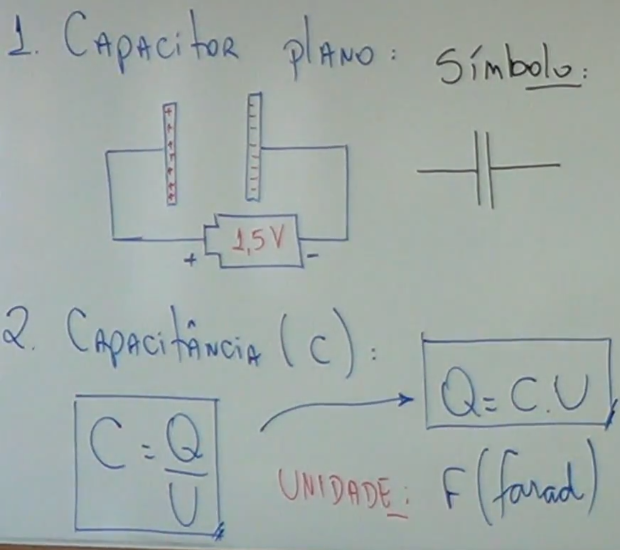 1. Capacitor plano:
Símbolo:
+ + + + + + +
1,5 V
+ -
2. Capacitância (C):
C = Q/U
Q = C.U
UNIDADE: F (farad)